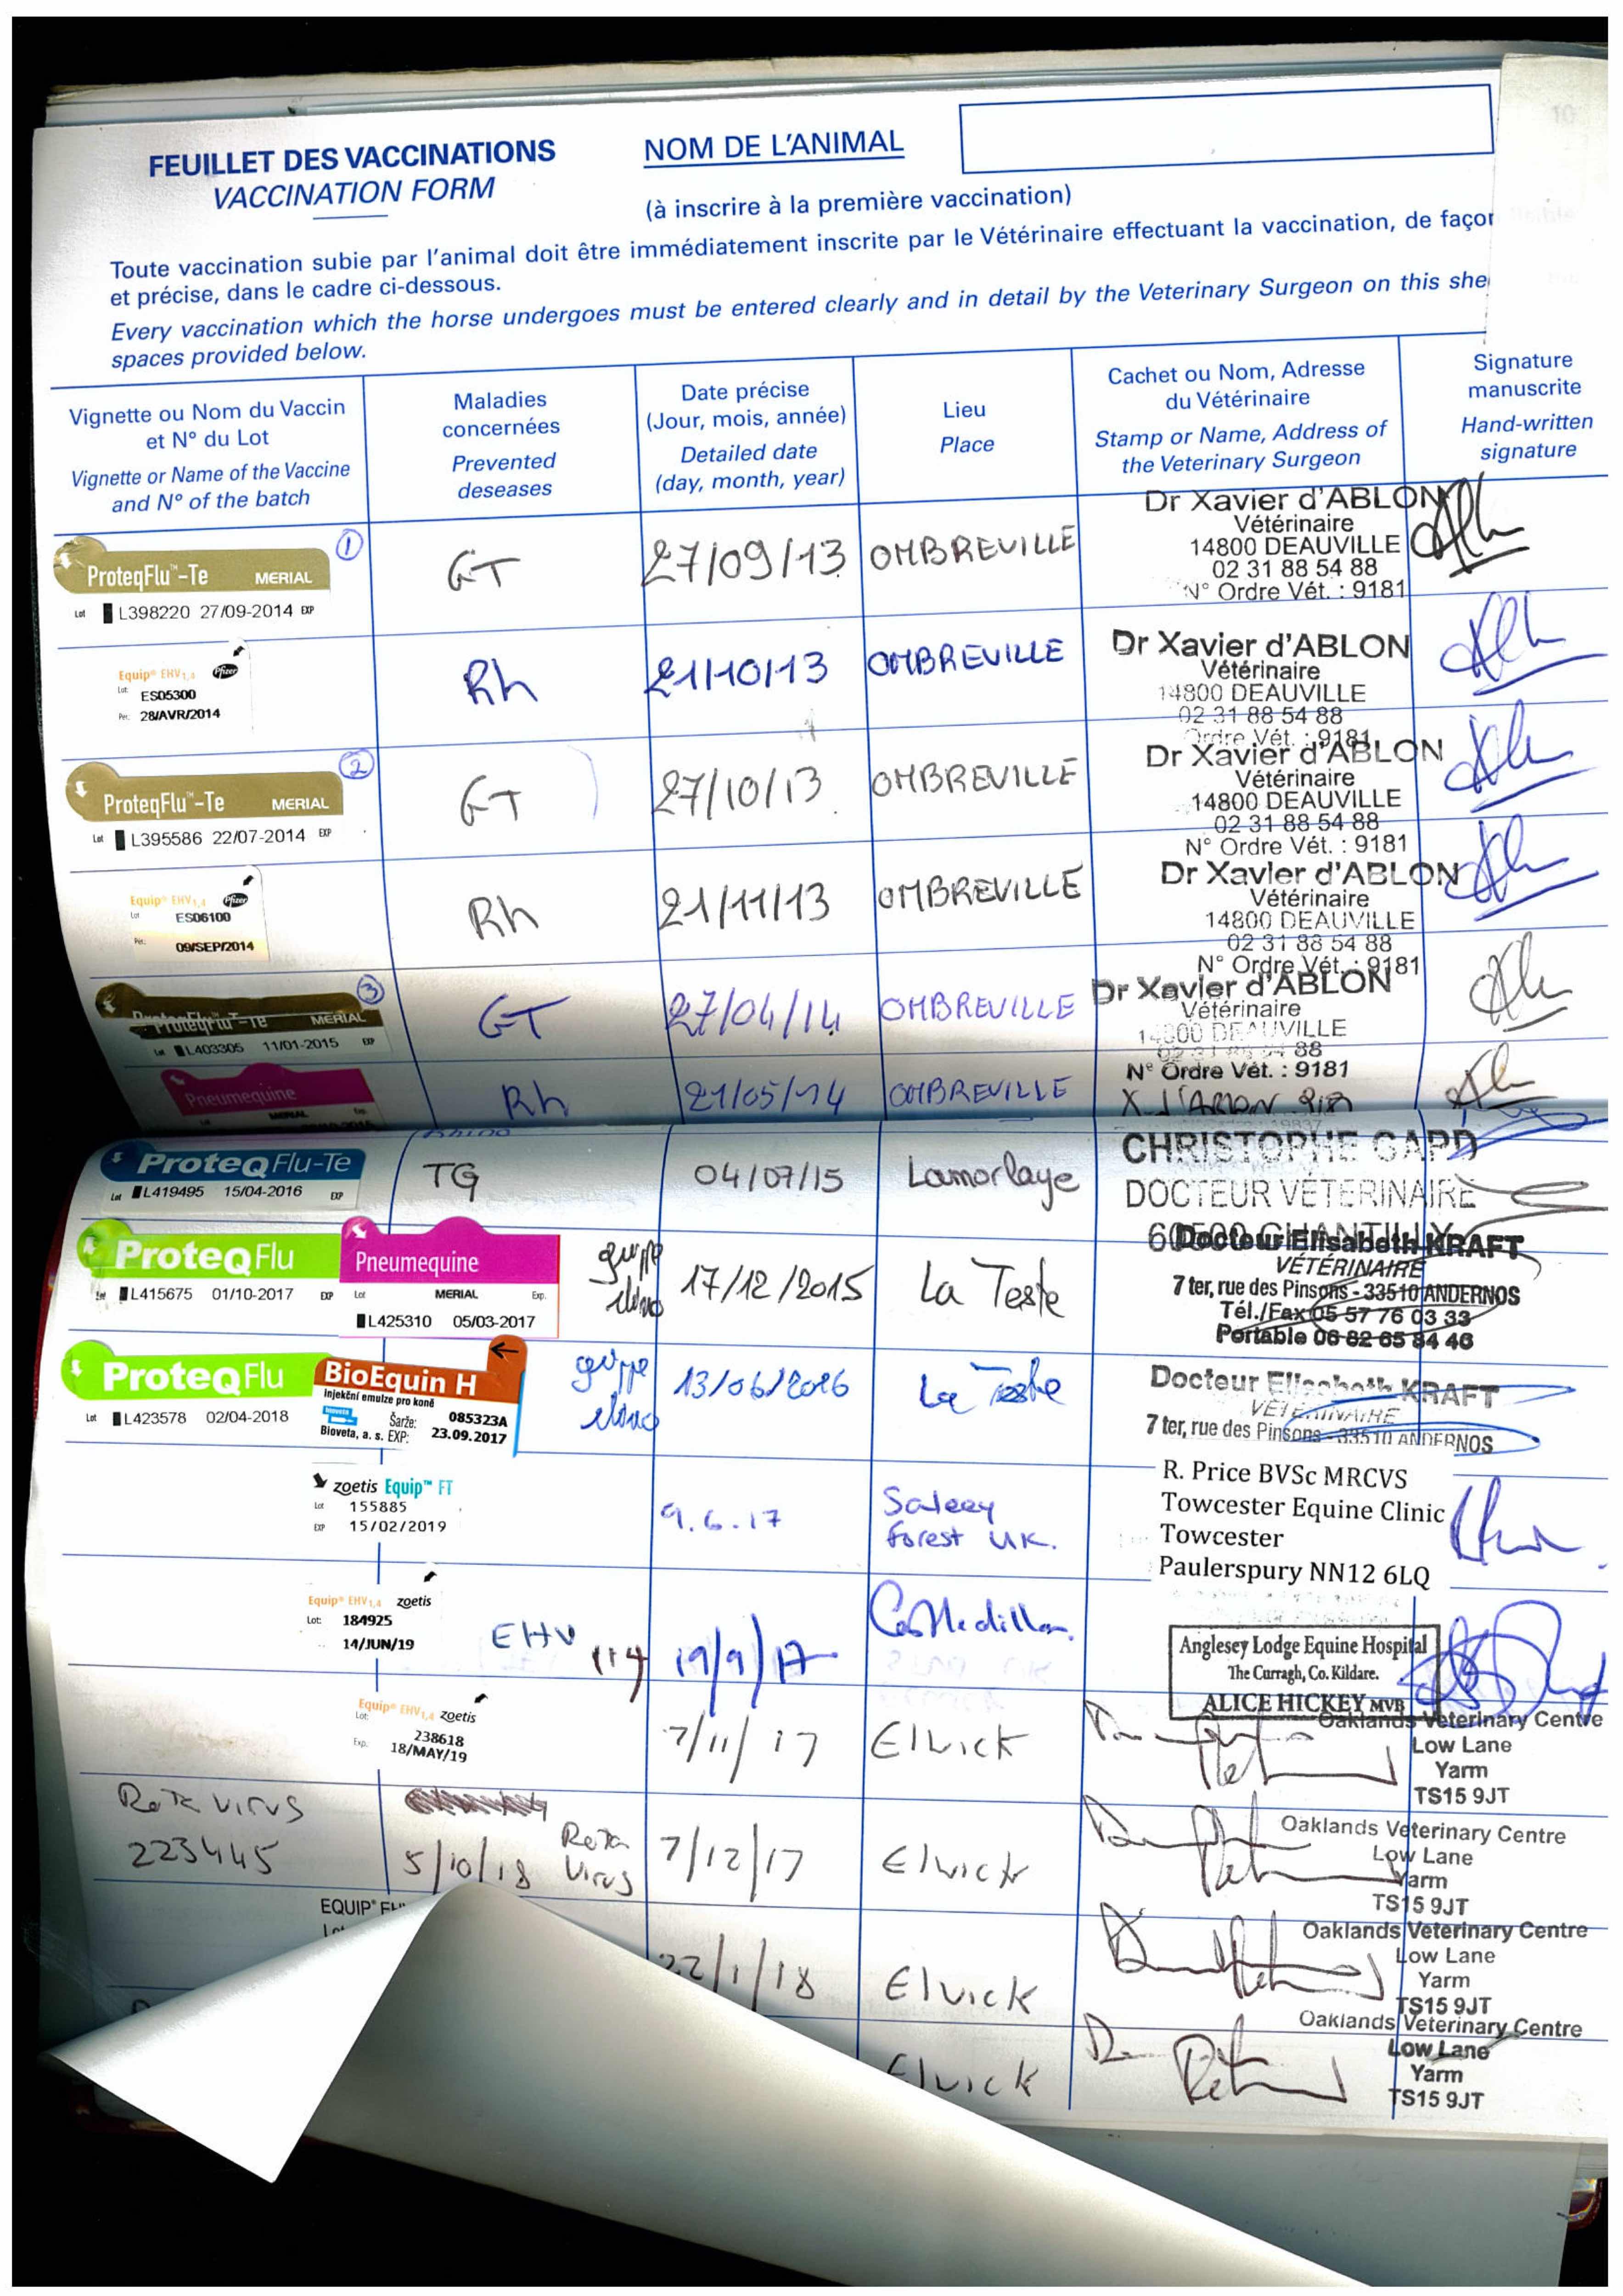 FEUILLET DES VACCINATIONS
VACCINATION FORM
NOM DE L'ANIMAL
(à inscrire à la première vaccination)
Toute vaccination subie par l'animal doit être immédiatement inscrite par le Vétérinaire effectuant la vaccination, de façon
et précise, dans le cadre ci-dessous.
Every vaccination which the horse undergoes must be entered clearly and in detail by the Veterinary Surgeon on this
spaces provided below.
Vignette ou Nom du Vaccin
et N° du Lot
Vignette or Name of the Vaccine
and N° of the batch
Maladies
concernées
Prevented
deseases
Date précise
(Jour, mois, année)
Detailed date
(day, month, year)
Lieu
Place
Cachet ou Nom, Adresse
du Vétérinaire
Stamp or Name, Address of
the Veterinary Surgeon
Signature
manuscrite
Hand-written
signature
1
ProteqFlu™-Te MERIAL
Lot L398220 27/09-2014 EXP
GT
27/09/13
OMBREVILLE
Dr Xavier d'ABLON
Vétérinaire
14800 DEAUVILLE
02 31 88 54 88
N° Ordre Vét. : 9181
Equip® EHV1,4 Pfizer
Lot: ES05300
Per.: 28/AVR/2014
Rh
21/10/13
OMBREVILLE
Dr Xavier d'ABLON
Vétérinaire
14800 DEAUVILLE
02 31 88 54 88
Ordre Vét. : 9181
2
ProteqFlu™-Te MERIAL
Lot L395586 22/07-2014 EXP
GT
27/10/13
OMBREVILLE
Dr Xavier d'ABLON
Vétérinaire
14800 DEAUVILLE
02 31 88 54 88
N° Ordre Vét. : 9181
Equip® EHV1,4 Pfizer
Lot ES06100
Per.: 09/SEP/2014
Rh
21/11/13
OMBREVILLE
Dr Xavier d'ABLON
Vétérinaire
14800 DEAUVILLE
02 31 88 54 88
N° Ordre Vét. : 9181
3
ProteqFlu™-Te MERIAL
Lot L403305 11/01-2015 EXP
GT
27/04/14
OMBREVILLE
Dr Xavier d'ABLON
Vétérinaire
14800 DEAUVILLE
88
N° Ordre Vét. : 9181
Pneumequine
MERIAL
Rh
21/05/14
OMBREVILLE
X d'ABLON
ProteqFlu-Te
Lot L419495 15/04-2016 EXP
TG
04/07/15
Lamorlaye
CHRISTOPHE GARD
DOCTEUR VÉTÉRINAIRE
60500 CHANTILLY
ProteqFlu
Lot L415675 01/10-2017 EXP
Pneumequine
Lot MERIAL Exp.
L425310 05/03-2017
grippe
17/12/2015
La Teste
Docteur Elisabeth KRAFT
VÉTÉRINAIRE
7 ter, rue des Pinsons - 33510 ANDERNOS
Tél./Fax 05 57 76 03 33
Portable 06 82 65 84 46
ProteqFlu
Lot L423578 02/04-2018
BioEquin H
injekční emulze pro koně
bioveta Šarže: 085323A
Bioveta, a. s. EXP: 23.09.2017
grippe
13/06/2016
La Teste
Docteur Elisabeth KRAFT
VÉTÉRINAIRE
7 ter, rue des Pinsons - 33510 ANDERNOS
zoetis Equip™ FT
Lot 155885
EXP 15/02/2019
9.6.17
Salcey
Forest UK.
R. Price BVSc MRCVS
Towcester Equine Clinic
Towcester
Paulerspury NN12 6LQ
Equip® EHV1,4 zoetis
Lot: 184925
14/JUN/19
EHV 114
19/9/17
Castledillon.
Anglesey Lodge Equine Hospital
The Curragh, Co. Kildare.
ALICE HICKEY MVB
Equip® EHV1,4 zoetis
Lot: 238618
Exp. 18/MAY/19
7/11/17
Elwick
Oaklands Veterinary Centre
Low Lane
Yarm
TS15 9JT
Rota virus
223445
5/10/18
Rota
Virus
7/12/17
Elwick
Oaklands Veterinary Centre
Low Lane
Yarm
TS15 9JT
EQUIP®
22/1/18
Elwick
Oaklands Veterinary Centre
Low Lane
Yarm
TS15 9JT
Elwick
Oaklands Veterinary Centre
Low Lane
Yarm
TS15 9JT